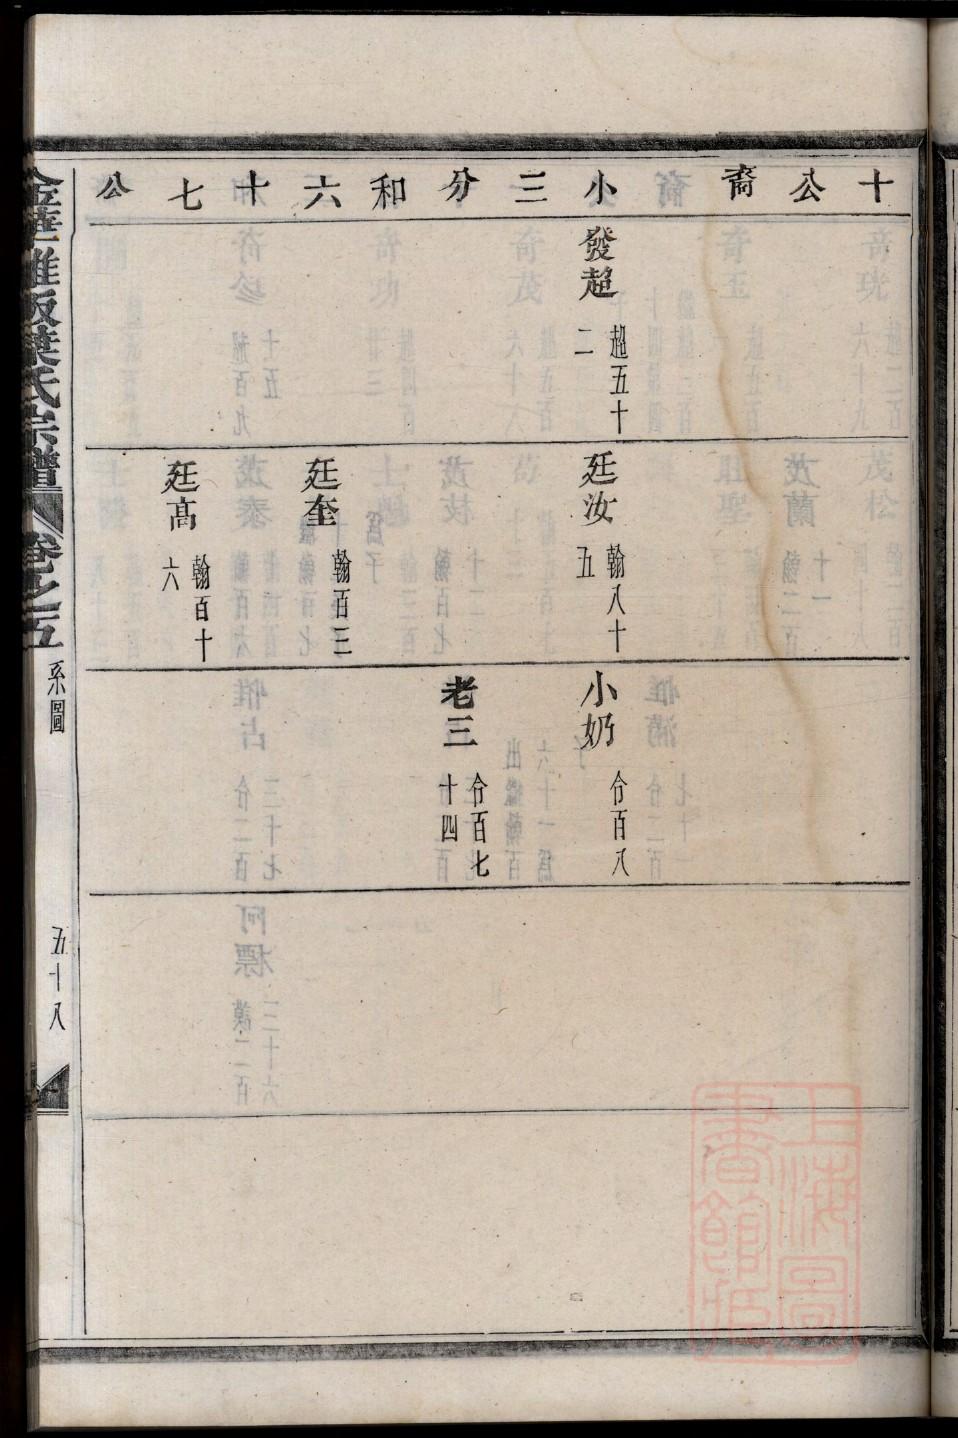 十公裔 小三分和六十七公
發超 超五十二
廷汝 翰八十五
廷奎 翰百三
廷高 翰百十六
小奶 仱百八
老三 仱百七十四
金華雅畈葉氏宗譜 卷之五 系圖 五十八
上海圖書館藏